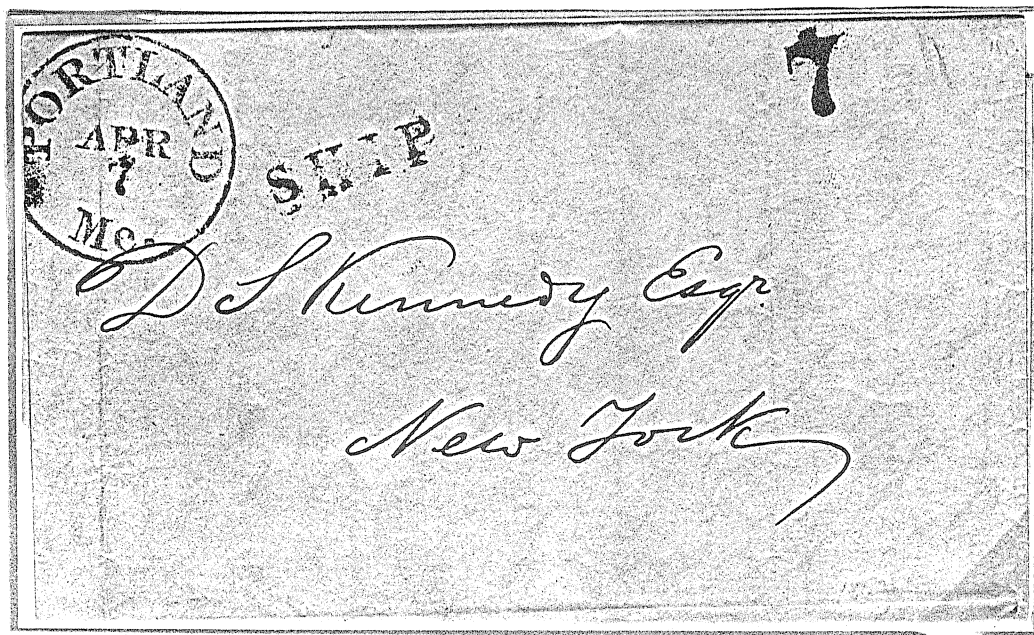 PORTLAND
APR
7
Me.
SHIP
7
D S Kennedy Esqr.
New York